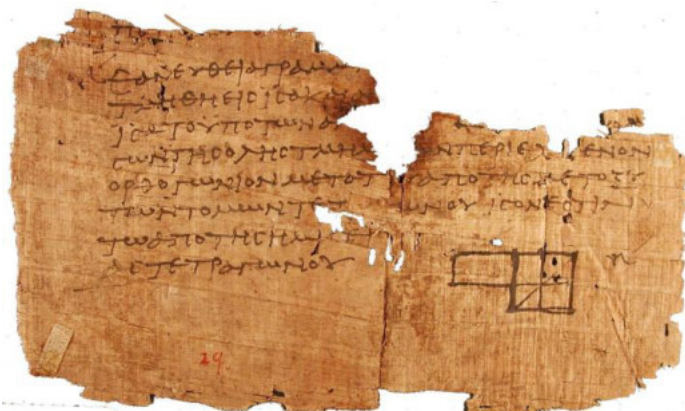 ΕΑΝ ΕΥΘΕΙΑ ΓΡΑΜΜ
ΤΜΗΘΗ ΕΙϹ ΙϹΑ ΚΑΙ ΑΝ
ΙϹΑ ΤΟ ΥΠΟ ΤΩΝ ΑΝ
ϹΩΝ ΤΗϹ ΟΛΗϹ ΤΜΗΜ Ν ΠΕΡΙΕΧ ΜΕΝΟΝ
ΟΡΘΟΓΩΝΙΟΝ ΜΕΤΑ ΤΟΥ ΑΠΟ ΤΗϹ ΜΕΤΟΞΥ
ΤΩΝ ΤΟΜΩΝ ΤΕΤ ΩΝΟΥ ΙϹΟΝ ΕϹΤΙΝ
ΤΩ ΑΠΟ ΤΗϹ ΗΜΙ
ΑϹ ΤΕΤΡΑΓΩΝΟΥ
29